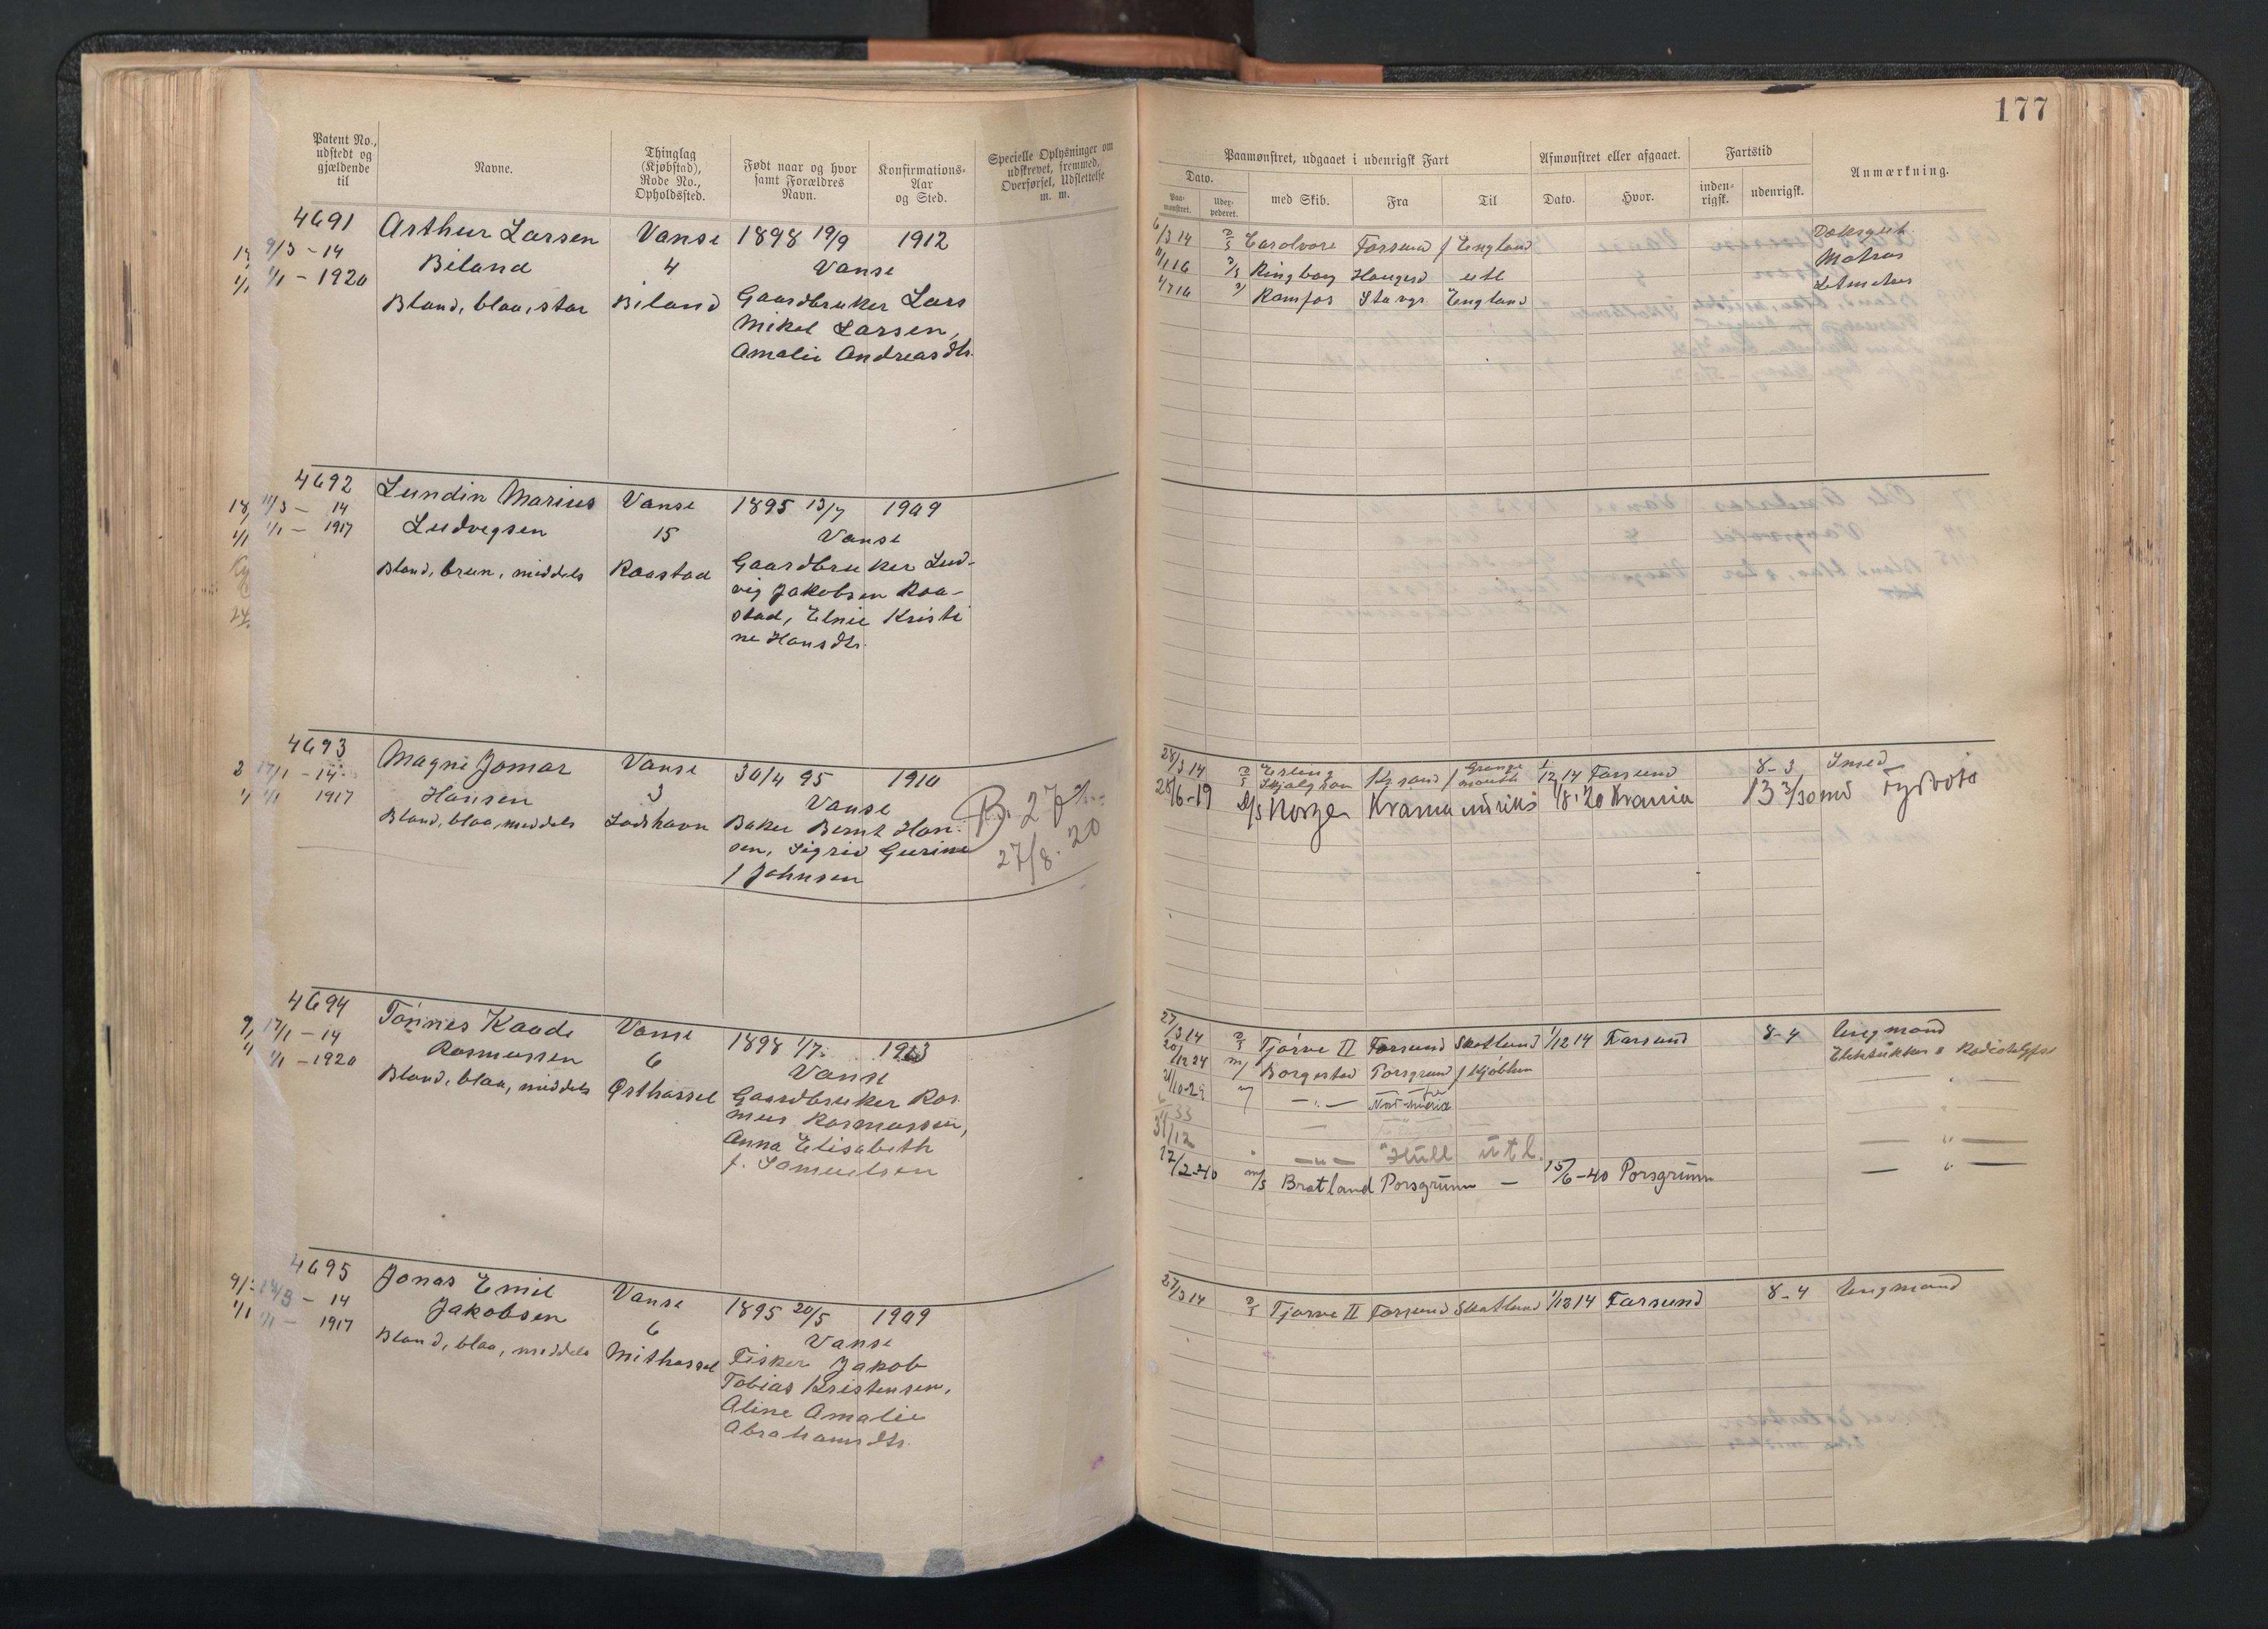 177
Patent No., udstedt og gjældende til
Navne.
Thinglag (Kjøbstad), Rode No., Opholdssted.
Født naar og hvor samt Forældres Navn.
Konfirmations-Aar og Sted.
Specielle Oplysninger om udskrevet, fremmed, Overførsel, Udslettelse m. m.
Paamønstret, udgaaet i udenrigsk Fart
Afmønstret eller afgaaet.
Fartstid
Anmærkning.
Dato.
Paamønstret.
Udexpederet.
med Skib.
Fra
Til
Dato.
Hvor.
indenrigsk.
udenrigsk.
4691
Arthur Larsen Vanse 1898 19/9 1912
9/3 - 14
Biland 4 Vanse
1/1 - 1920
Blond, blaa, stor Biland Gaardbruker Lars
Mikal Larsen,
Amalie Andreasdtr.
6/3 14 Farsund England
1/1 16 Ringborg Hauges utl Matros
1/7 16 Ramfos Stavgr England Letmatros
4692
Lundin Marius Vanse 1895 13/7 1909
11/3 - 14
Ludvigsen 15 Vanse
1/1 - 1917
Blond, brun, middels Raastad Gaardbruker Lud-
vig Jakobsen Raa-
stad, Elnie Kristi
ne Hansdtr.
4693
Magne Jomar Vanse 30/4 95 1910
17/1 - 14
Hansen 3 Vanse
1/1 1917
Blond, blaa, middels Ladshavn Baker Bernt Han-
sen, Sigrid Gurine
f Johnsen
27/8. 20
28/3 14 Erling Skjalgson Kr sand f Grangemouth 1/12 14 Farsund 8-3
28/6-19 D/S Norge Krania utriks 1/8. 20 Krania 13 3/30 md Fyrbøt
4694
Tønnes Kaade Vanse 1898 1/7. 1913
17/1 - 14
Rasmussen 6 Vanse
1/1 - 1920
Blond, blaa, middels Østhassel Gaardbruker Ras
mus Rasmussen,
Anna Elisabeth
f. Samuelsen
27/3 14 Tjørve II Farsund Skotland 1/12 14 Farsund 8-4 Ungmand
20/12 24 m/ Borgestad Porsgrund f Kjøbhvn
31/12 — " — Hull utl. — " —
12/2-40 m/s Bratland Porsgrunn — 15/6-40 Porsgrunn — " —
4695
Jonas Emil Vanse 1895 20/5 1909
14/3 - 14
Jakobsen 6 Vanse
1/1 - 1917
Blond, blaa, middels Mithassel Fisker Jakob
Tobias Kristensen,
Aline Amalie
Abrahamsdtr.
27/3 14 Tjørve II Farsund Skotland 1/12 14 Farsund 8-4 Ungmand